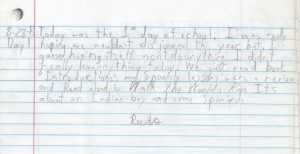 8-28 Today was the 1st day of school. I was really
Day 1 hoping we wouldn't do journal this year but, I
guess hoping itself won't do anything. I didn't
really learn anything today. We just read book
Introductions and Spanish lessons were a review
and Read aloud is Walk the World's Rim. It's
about an Indian boy and some Spaniards.